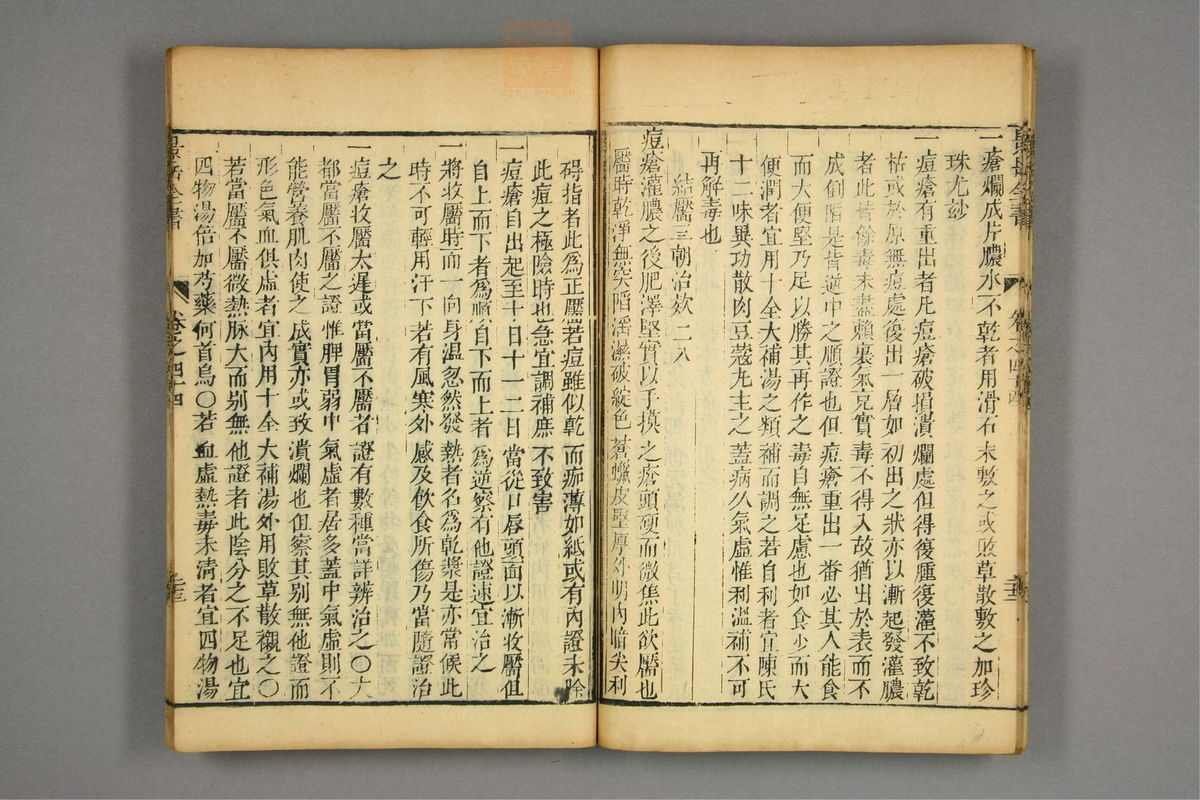 景岳全書
卷之四十四
一瘡爛成片膿水不乾者用滑石末敷之或敗草散敷之加珍
珠尤玅
一痘瘡有重出者凡痘瘡破損潰爛處但得復腫復灌不致乾
枯或於原無痘處復出一層如初出之狀亦以漸起發灌膿
者此皆餘毒未盡賴裏氣充實毒不得入故猶出於表而不
成倒陷是皆逆中之順證也但痘瘡重出一番必其人能食
而大便堅乃足以勝其再作之毒自無足慮也如食少而大
便潤者宜用十全大補湯之類補而調之若自利者宜陳氏
十二味異功散肉豆蔻丸主之蓋病久氣虛惟利溫補不可
再解毒也
結靨三朝治欵二八
痘瘡灌膿之後肥澤堅實以手摸之瘡頭硬而微焦此欲靨也
靨時乾淨無突陷淫濕破綻色蒼蠟皮堅厚外明內暗尖利
碍指者此為正靨若痘雖似乾而痂薄如紙或有內證未除
此痘之極險時也急宜調補庶不致害
一痘瘡自出起至十日十一二日當從口唇頭面以漸收靨但
自上而下者為順自下而上者為逆察有他證速宜治之
一將收靨時而一向身温忽然發熱者名為乾漿是亦常候此
時不可輕用汗下若有風寒外感及飲食所傷乃當隨證治
之
一痘瘡收靨太遲或當靨不靨者證有數種當詳辨治之○大
都當靨不靨之證惟脾胃弱中氣虛者居多蓋中氣虛則不
能營養肌肉使之成實亦或致潰爛也但察其別無他證而
形色氣血俱虛者宜內用十全大補湯外用敗草散襯之○
若當靨不靨微熱脉大而别無他證者此陰分之不足也宜
四物湯倍加芍藥何首烏○若血虛熱毒未清者宜四物湯
景岳全書
卷之四十四